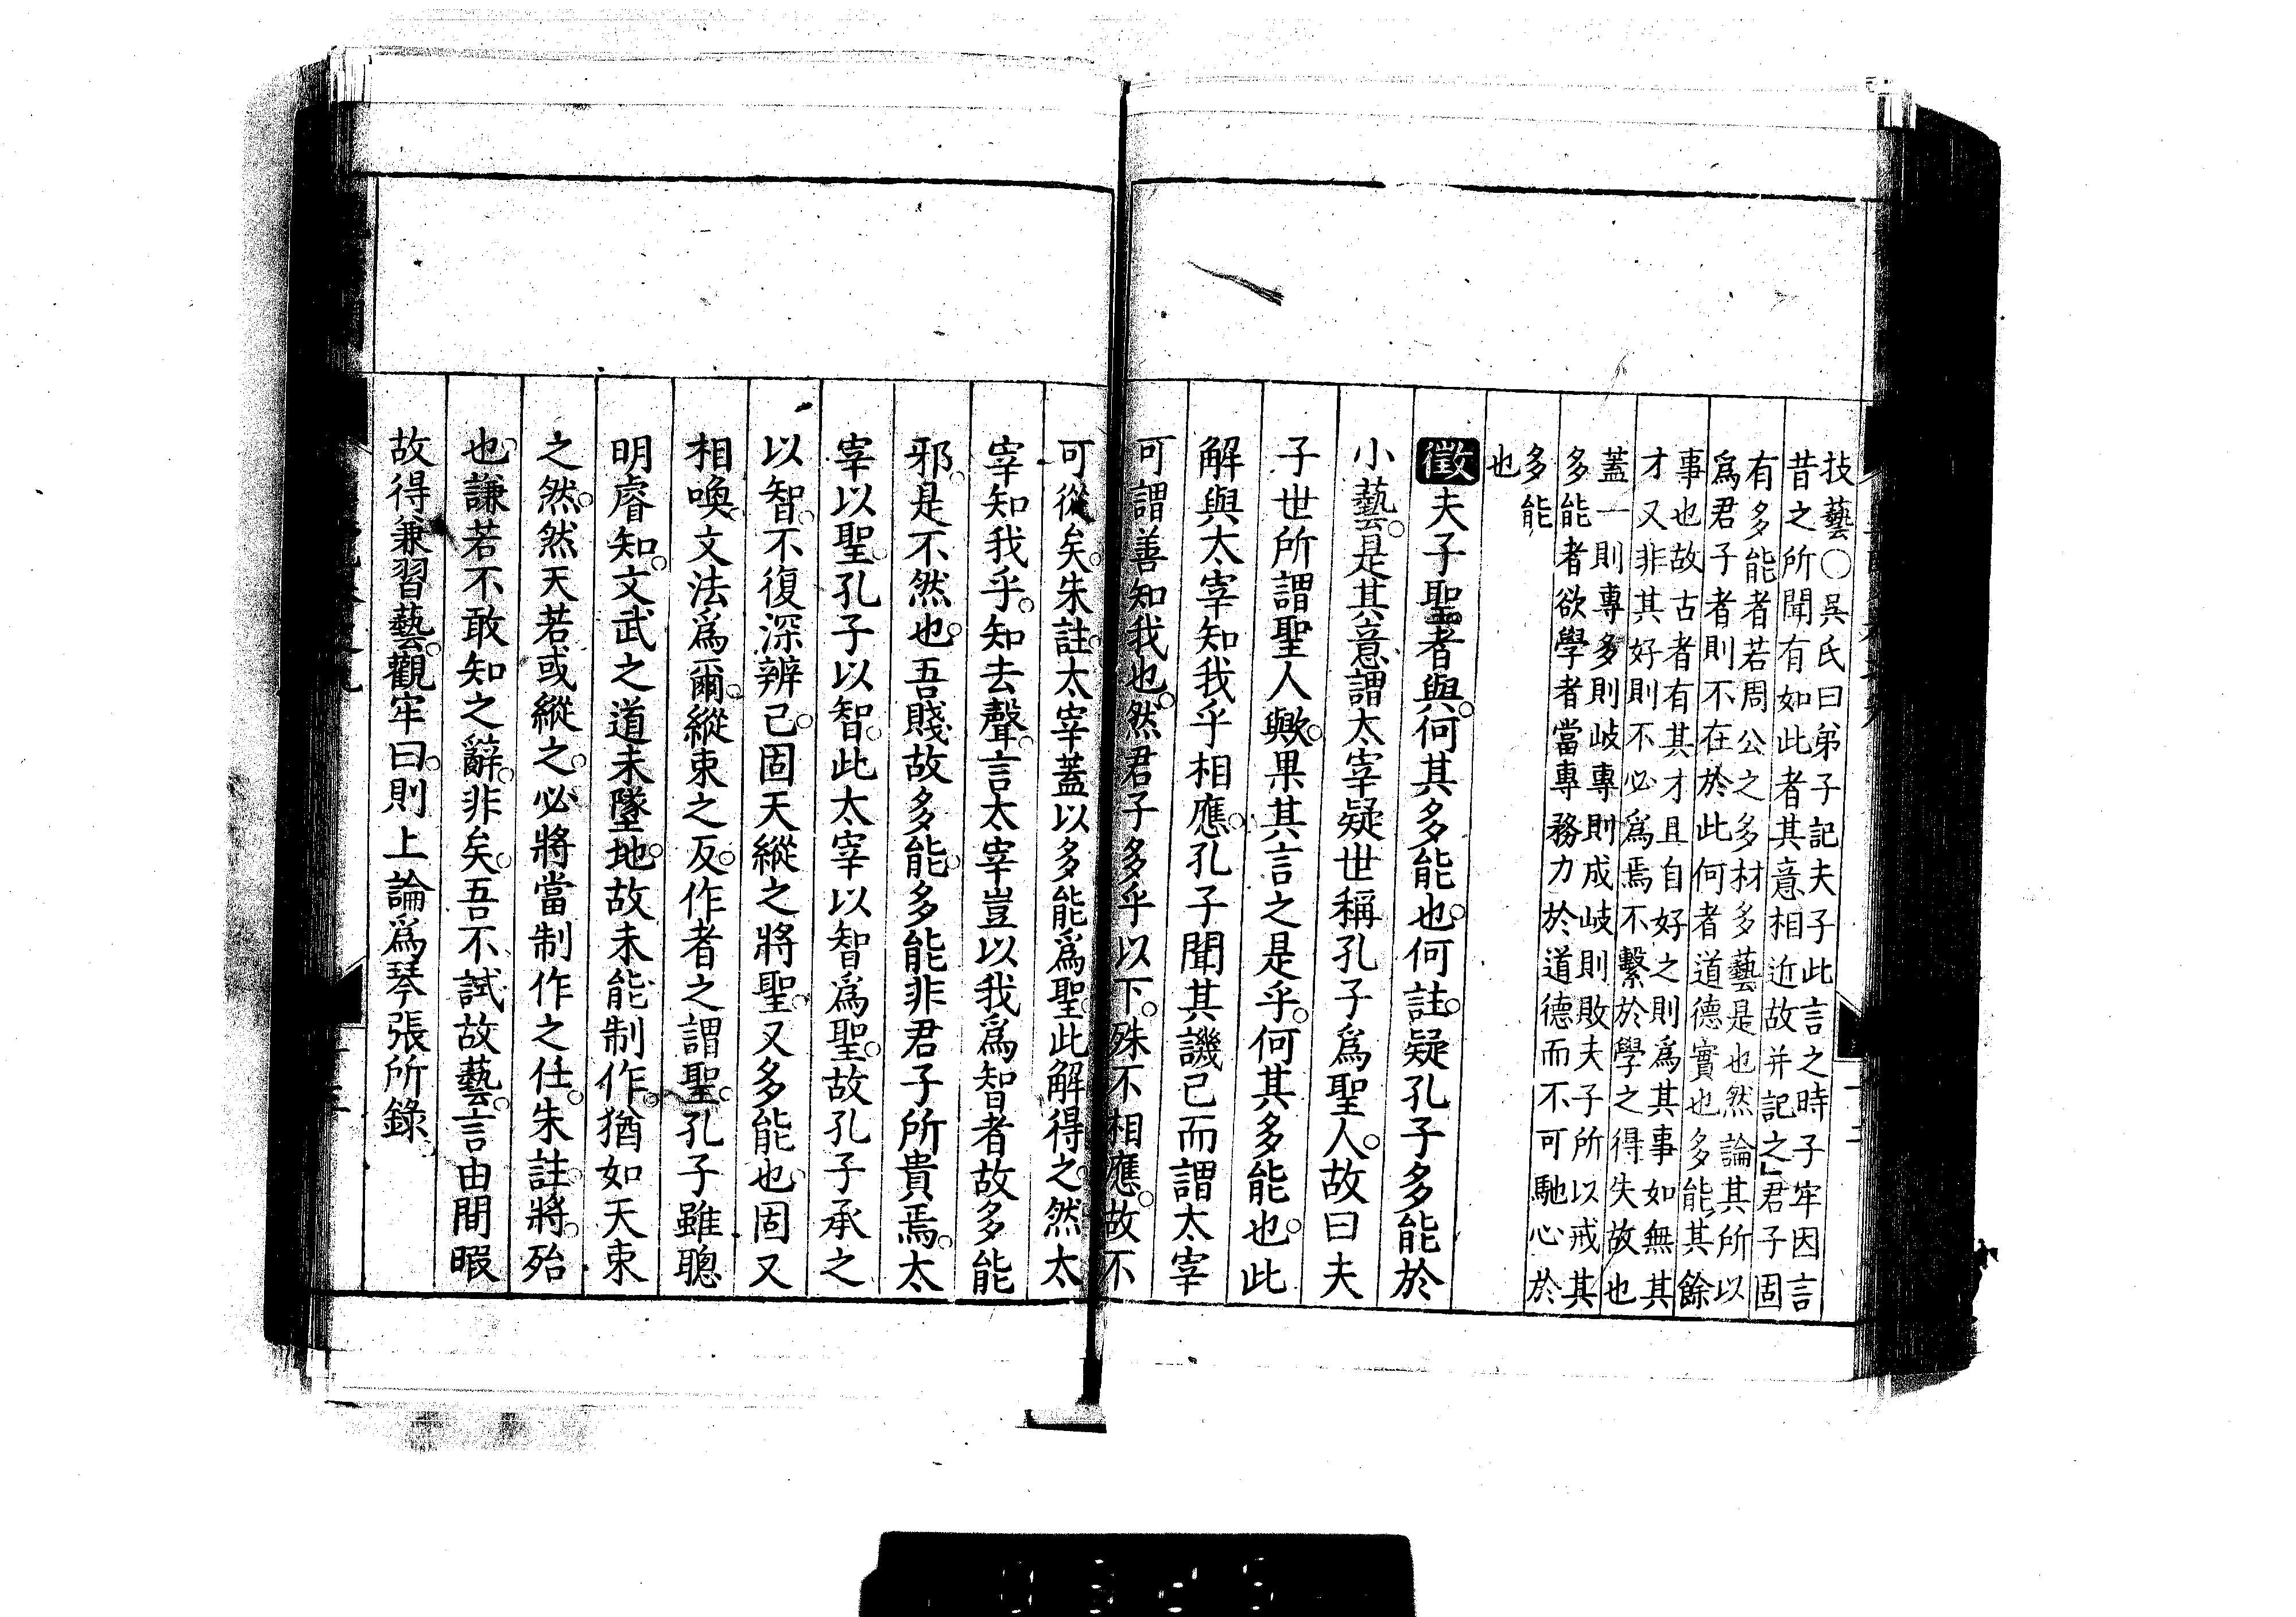 技藝○吳氏曰弟子記夫子此言之時子牢因言
昔之所聞有如此者其意相近故并記之」君子固
有多能者若周公之多材多藝是也然論其所以
爲君子者則不在於此何者道德實也多能其餘
事也故古者有其才且自好之則爲其事如無其
才又非其好則不必爲焉不繫於學之得失故也
蓋一則專多則岐專則成岐則敗夫子所以戒其
多能者欲學者當專務力於道德而不可馳心於
多能
也
徵夫子聖者與。何其多能也。何註。疑孔子多能於
小藝。是其意謂太宰疑世稱孔子爲聖人。故曰夫
子世所謂聖人歟。果其言之是乎。何其多能也。此
解與太宰知我乎相應。孔子聞其譏己而謂太宰
可謂善知我也。然君子多乎以下。殊不相應。故不
可從矣。朱註。太宰蓋以多能爲聖。此解得之。然太
宰知我乎。知去聲。言太宰豈以我爲智者故多能
邪。是不然也。吾賤故多能。多能非君子所貴焉。太
宰以聖。孔子以智。此太宰以智爲聖。故孔子承之
以智。不復深辨己。固天縱之將聖。又多能也。固又
相喚。文法爲爾。縱束之反。作者之謂聖。孔子雖聰
明睿知。文武之道未墜地。故未能制作。猶如天束
之然。然天若或縱之。必將當制作之任。朱註。將。殆
也。謙若不敢知之辭。非矣。吾不試故藝。言由間暇
故得兼習藝。觀牢曰。則上論爲琴張所錄